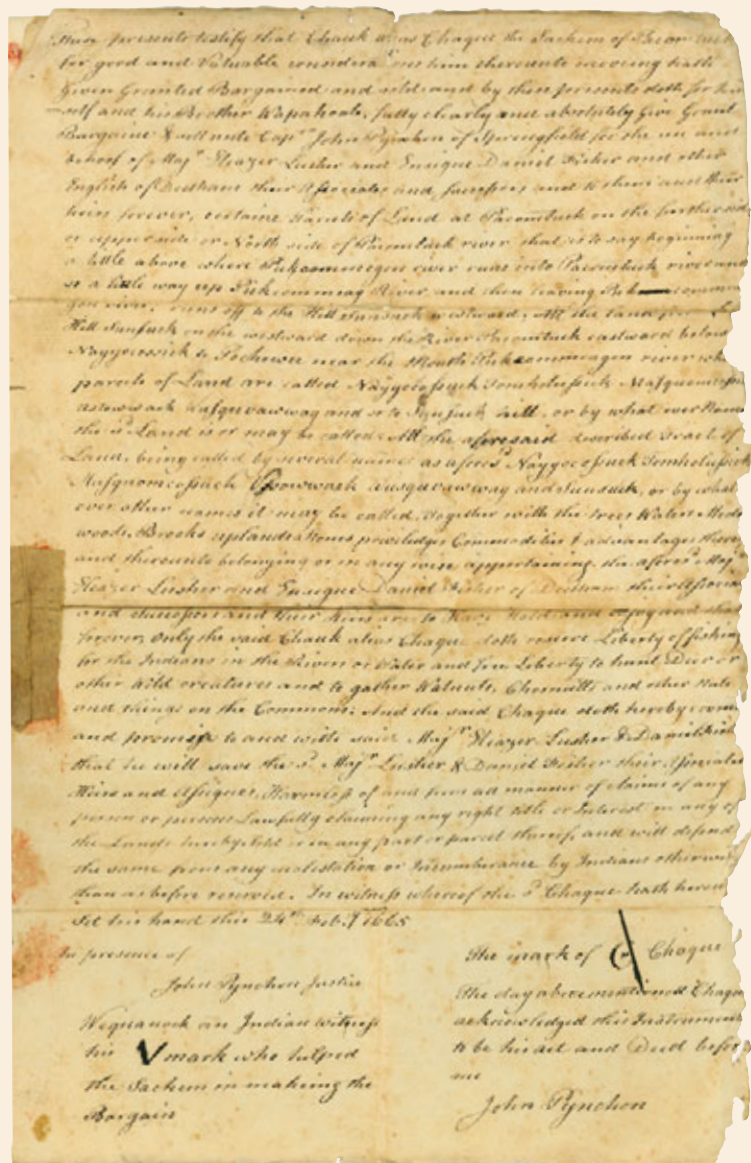 These presents testify that Chauk alias Chaque the Sachem of
for good and Valuable considera him thereunto moving hath
Given Granted Bargained and sold and by these presents doth for him
self and his Brother Wapahoale, fully clearly and absolutely Give Grant
Bargaine & sell unto Capn John Pynchon of Springfield for the use and
behoof of Majr Eleazer Lusher and Ensigne Daniel Fisher and other
English of Dedham their Associates and successors and to them and their
heirs forever, certaine Parcels of Land at Pacomtuck on the further side
or upper side or North side of Pacomtuck river that is to say beginning
a little above where Puckcommeagon river runs into Pacomtuck river and
so a little way up Puckcommeag River and then leaving
gon river, runs off to the Hill Sunsuck westward, All the land from
Hill Sunsuck on the westward down the River Pacomtuck eastward below
Nayyocossick to Pochewee near the Mouth Puckcommeagon river wh
parcels of Land are called Nayyocossuck Tomholissick
and so to Sunsuck hill, or by what ever Name
the sd Land is or may be called. All the aforesaid described Tract of
Land, being called by several names as aforesd Nayyocossuck Tomholissick
and Sunsuck, or by what
ever other names it may be called, Together with the trees Waters
woods, Brooks uplands stones priviledges Commodities & advantages there
and thereunto belonging or in any wise appertaining the aforesd Majr
Eleazer Lusher and Ensigne Daniel Fisher of Dedham their
and successors and their heirs are to Have Hold and enjoy and that
forever, only the said Chauk alias Chaque doth reserve Liberty of fishing
for the Indians in the Rivers or Waters and free Liberty to hunt Deer or
other Wild creatures and to gather Walnuts, Chesnutts and other Nuts
and things on the Commons; And the said Chaque doth hereby
and promise to and with said Majr Eleazer Lusher & Daniel
that he will save the sd Majr Lusher & Daniel Fisher their Associates
Heirs and Assignes, Harmless of and from all manner of claims of any
person or persons Lawfully claiming any right title or Interest in any of
the Lands hereby sold or in any part or parcel thereof, and will defend
the same from any molestation or Incumberance by Indians otherwi
than as before reserved. In witness whereof the sd Chaque hath hereun
Set his hand this 24th Feby 1665
In presence of
John Pynchon Justice
Wequanock an Indian witness
his V mark who helped
the Sachem in making the
Bargain
The mark of Chaque
The day abovementioned Chaque
acknowledged this Instrument
to be his act and Deed before
me
John Pynchon